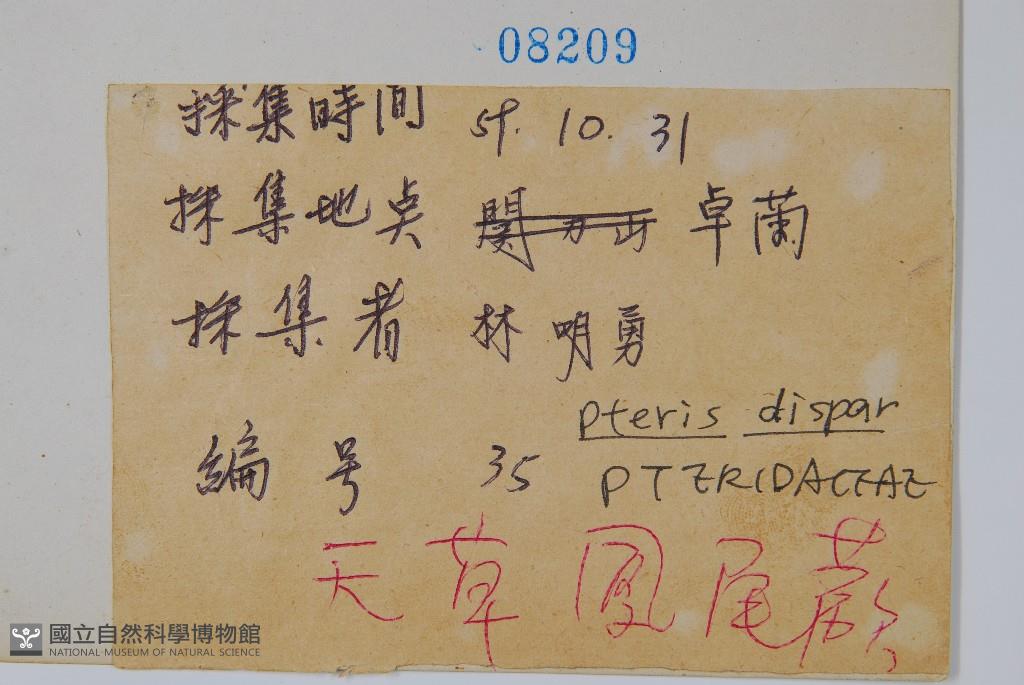 08209
採集時間 59. 10. 31
採集地点 関刀山 卓蘭
採集者 林明勇
編号 35
Pteris dispar
PTERIDACEAE
天草鳳尾蕨
國立自然科學博物館
NATIONAL MUSEUM OF NATURAL SCIENCE